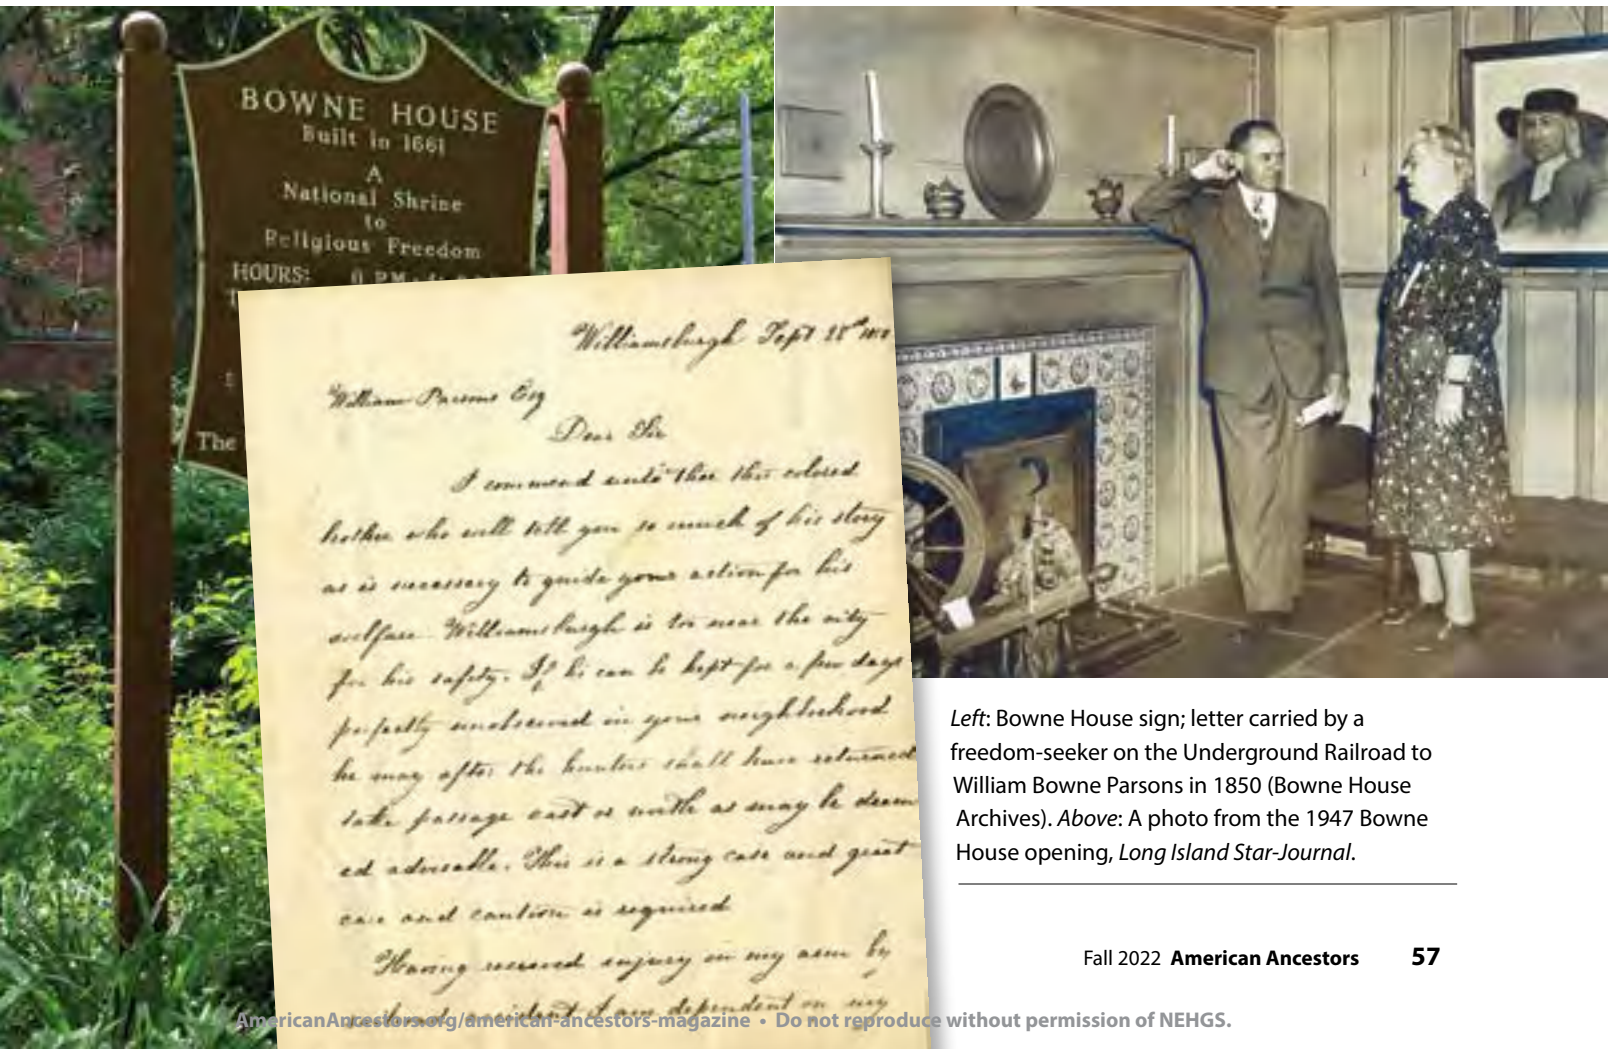 BOWNE HOUSE
Built in 1661
A
National Shrine
to
Religious Freedom
HOURS:
The
Williamsburgh Sept 28th
William Parsons Esq
Dear Sir
I commend unto thee this colored
brother who will tell you so much of his story
as is necessary to guide your action for his
welfare. Williamsburgh is too near the city
for his safety. If he can be kept for a few days
perfectly unobserved in your neighborhood
he may after the hunters shall have returned
take passage east or north as may be deem
ed advisable. This is a strong case and great
care and caution is required
Having received injury in my arm by
accident I am dependent on my
Left: Bowne House sign; letter carried by a
freedom-seeker on the Underground Railroad to
William Bowne Parsons in 1850 (Bowne House
Archives). Above: A photo from the 1947 Bowne
House opening, Long Island Star-Journal.
Fall 2022 American Ancestors 57
AmericanAncestors.org/american-ancestors-magazine • Do not reproduce without permission of NEHGS.